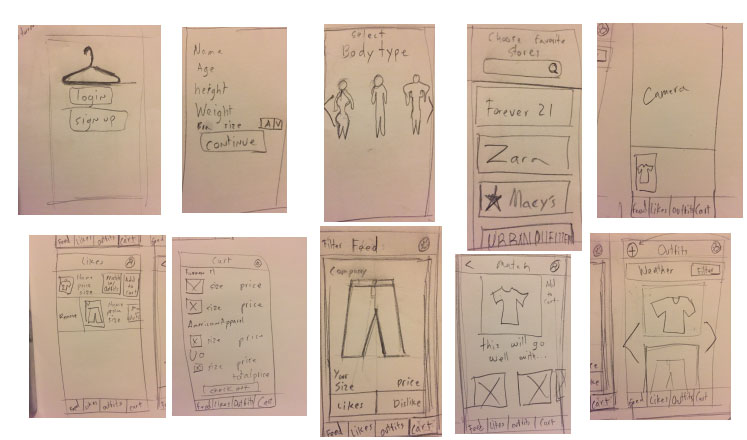 login
sign up
Name
Age
height
Weight
size A V
CONTINUE
Select
Body type
Choose Favorite
Stores
Forever 21
Zara
Macy's
URBAN OUTFITTERS
Camera
Feed Likes Outfits Cart
Feed Likes outfits Cart
Likes
Name
price
size
match
outfits
Add
to
cart
Name
price
size
Feed Likes outfits Cart
Cart
size price
size price
American Apparel
size price
UO
size price
total price
check out
Feed Likes Outfits Cart
Filter Feed
Company
Your
Size Price
Likes Dislike
Feed Likes outfits Cart
Match
Add
to
Cart
this will go
well with...
Feed Likes outfits Cart
Outfits
Weather Filter
Feed Likes Outfits Cart